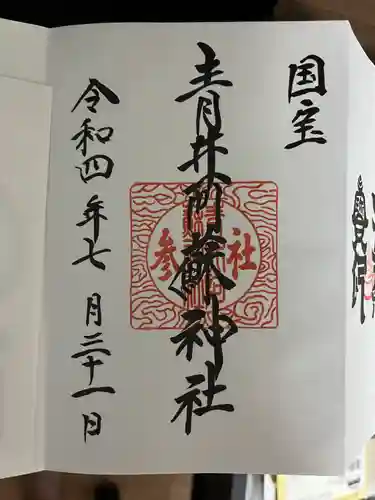 国宝
青井阿蘇神社
参社
令和四年七月三十一日